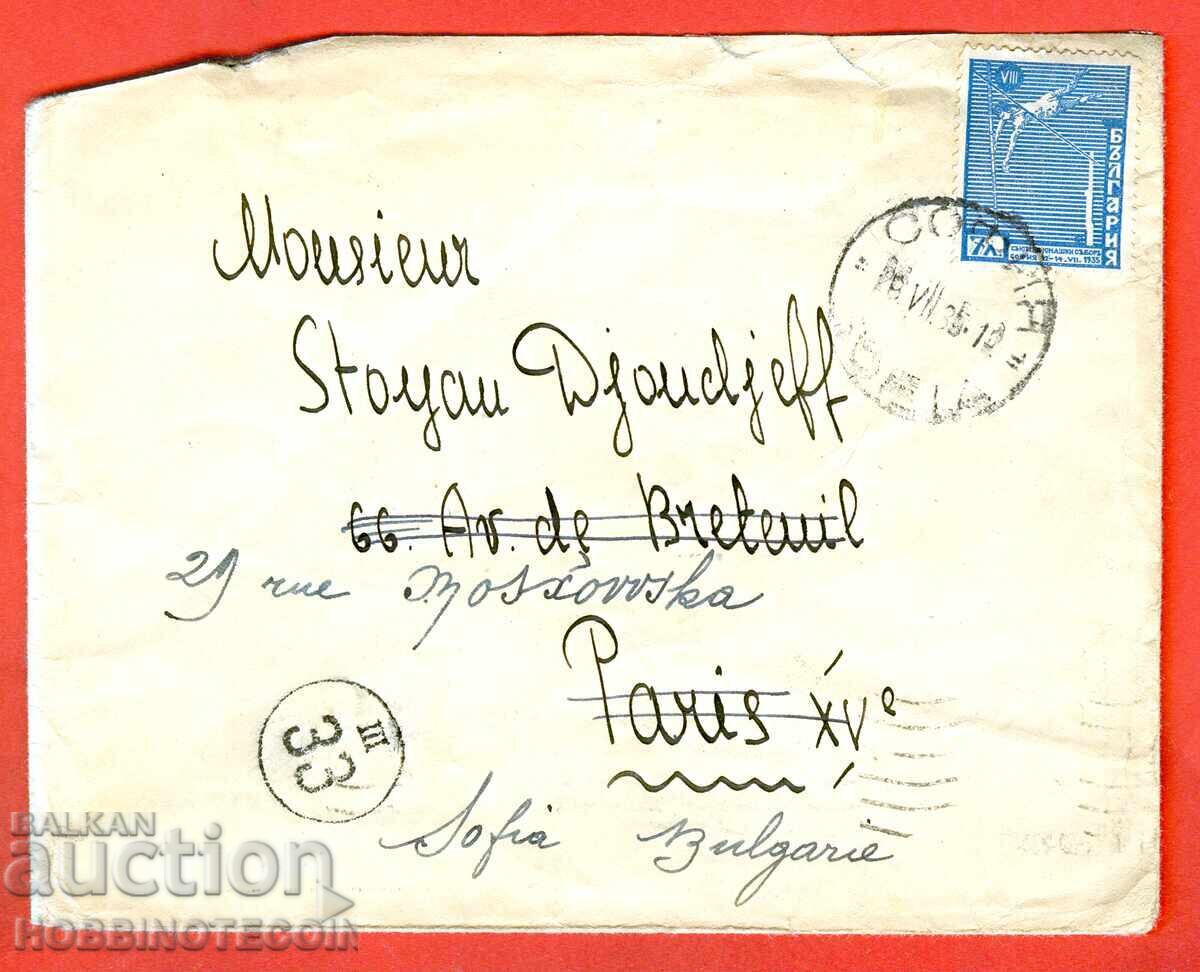 VIII
БЪЛГАРИЯ
7
СОФИЯ 12-14.VII.1935
СОФИЯ
VII.35.10
Monsieur
Stoyan Djoudjeff
66. Av. de Breteuil
29 rue Moskovska
Paris XVe
III
33
Sofia Bulgarie
BALKAN
auction
HOBBINOTECOIN